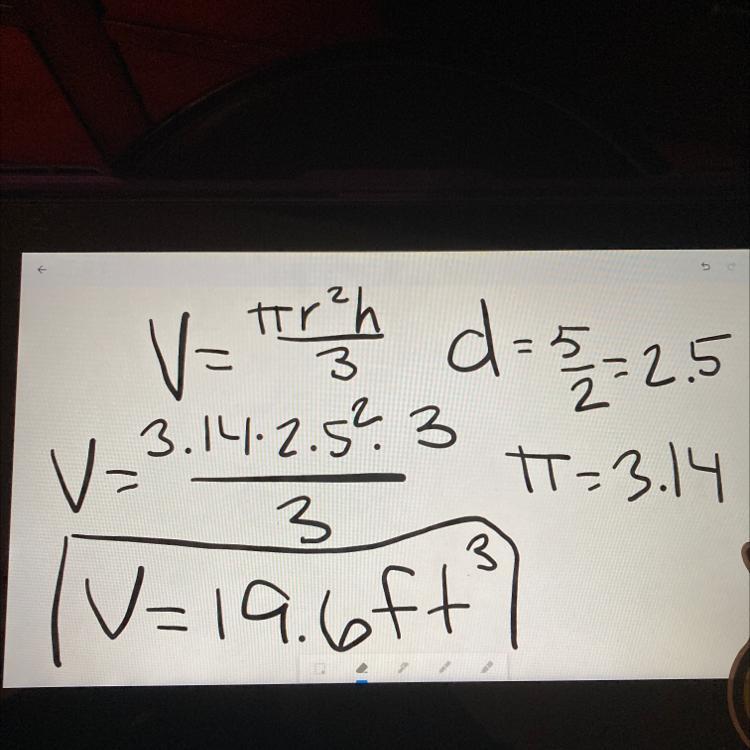 V = πr²h/3
d = 5/2 = 2.5
V = 3.14 · 2.5² · 3/3
π = 3.14
V = 19.6ft³